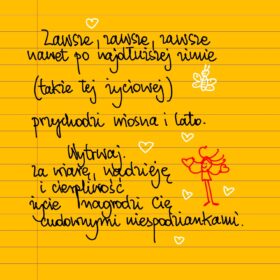 Zawsze, zawsze, zawsze
nawet po najdłuższej zimie
(takiej tej życiowej)
przychodzi wiosna i lato.
Wytrwaj.
Za wiarę, nadzieję
i cierpliwość
życie nagrodzi Cię
cudownymi niespodziankami.